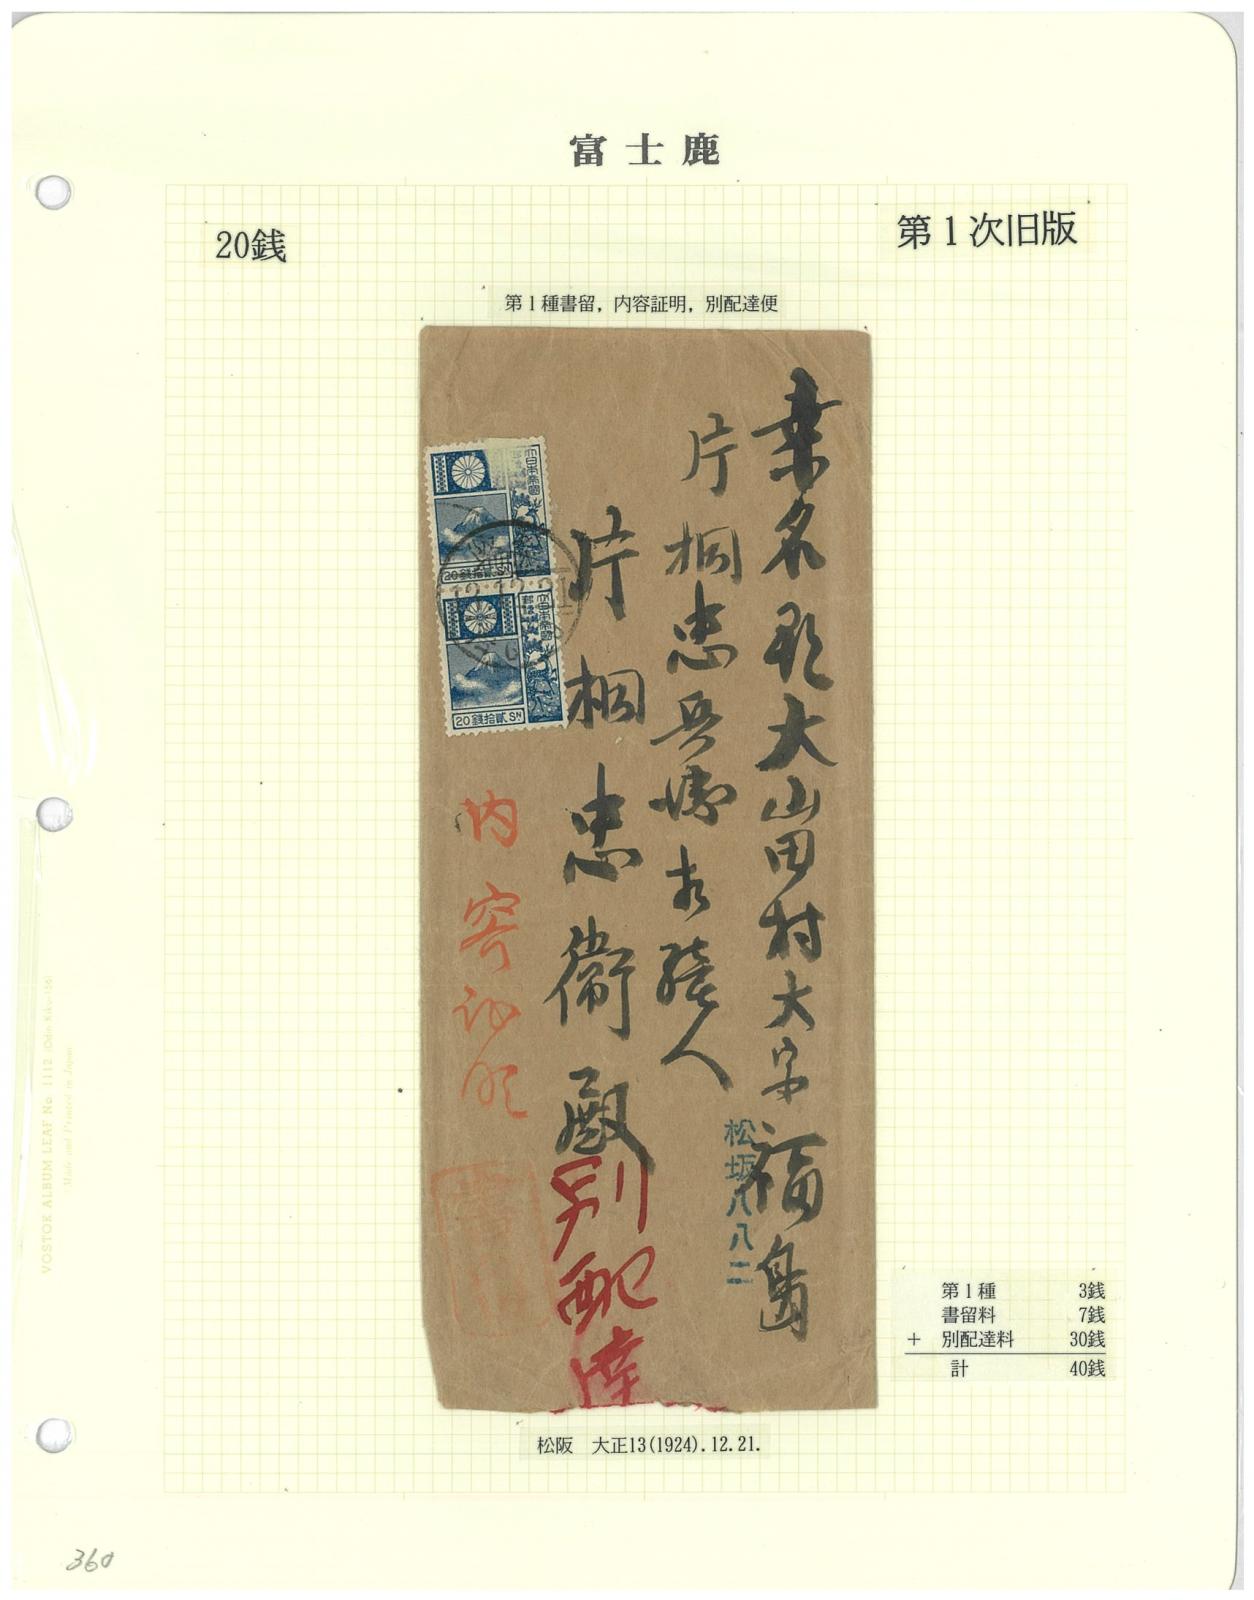 富士鹿
20銭
第1次旧版
第1種書留，内容証明，別配達便
桑名郡大山田村大字福島
片桐忠兵衛相続人
片桐忠衛殿
大日本帝國
郵便
20銭拾貳SN
大日本帝國
郵便
20銭拾貳SN
12.12.21
内容証明
別配達
松坂八八二
第1種 3銭
書留料 7銭
+ 別配達料 30銭
計 40銭
松阪 大正13(1924).12.21.
VOSTOK ALBUM LEAF No. 1112
Made and Printed in Japan
360